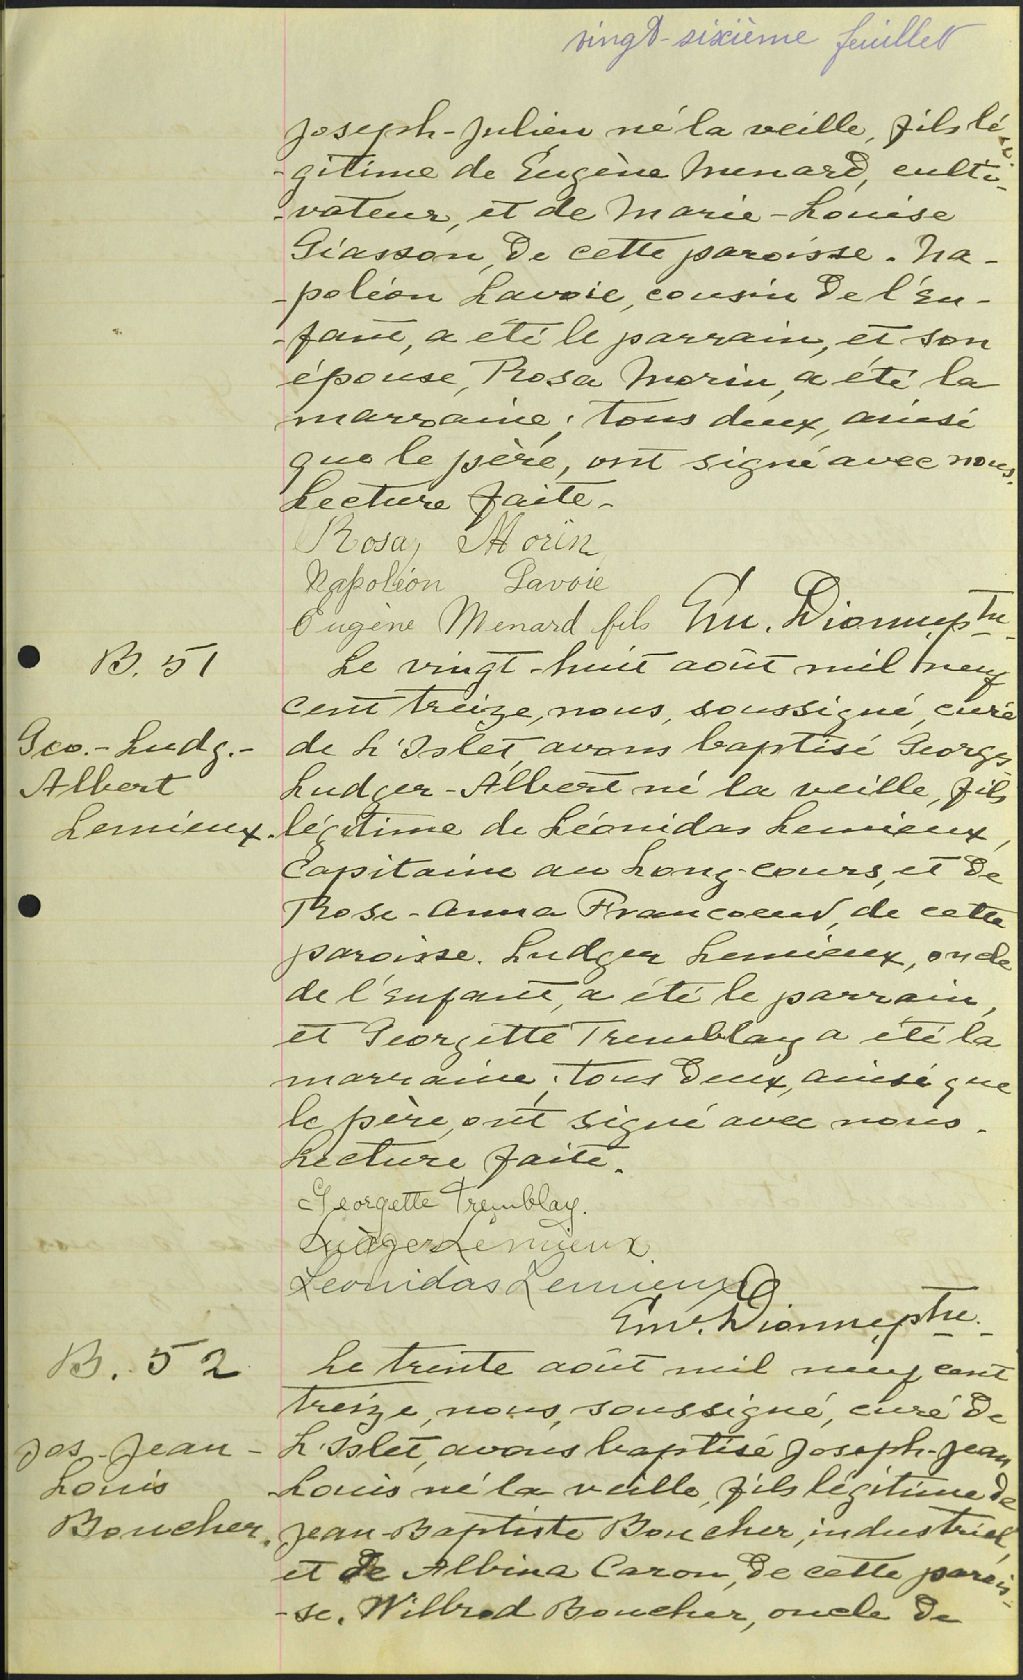 vingt-sixième feuillet
Joseph-Julien né la veille, fils lé
-gitime de Eugène Menard, culti-
-vateur, et de Marie-Louise
Giasson, de cette paroisse. Na-
-poléon Lavoie, cousin de l'En-
-fant, a été le parrain, et son
épouse, Rosa Morin, a été la
marraine; tous deux, ainsi
que le père, ont signé avec nous.
Lecture faite.
Rosa, Morin
Napoléon Lavoie
Eugène Menard fils Em. Dionne, ptre
B. 51
Geo.-Ludg.-
Albert
Lemieux.
Le vingt-huit août mil neuf
cent treize, nous, soussigné, curé
de L'Islet, avons baptisé Georges
Ludger-Albert né la veille, fils
légitime de Léonidas Lemieux,
Capitaine au Long-cours, et de
Rose-Anna Francoeur, de cette
paroisse. Ludger Lemieux, oncle
de l'Enfant, a été le parrain,
et Georgette Tremblay a été la
marraine; tous deux, ainsi que
le père, ont signé avec nous.
Lecture faite.
Georgette Tremblay.
Ludger Lemieux
Leonidas Lemieux
Em. Dionne, ptre.
B. 52
Jos-Jean-
Louis
Boucher.
Le trente août mil neuf cent
treize, nous, soussigné, curé de
L'Islet, avons baptisé Joseph-Jean
Louis né la veille, fils légitime de
Jean-Baptiste Boucher, industriel,
et de Albina Caron, de cette parois-
-se. Wilbrod Boucher, oncle de